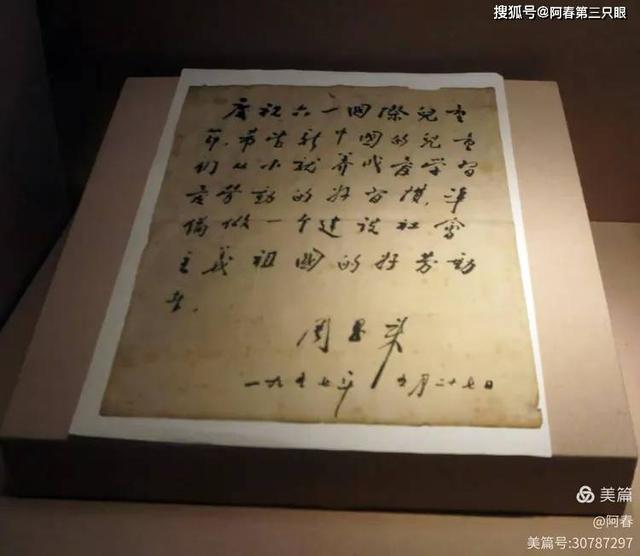 搜狐号@阿春第三只眼
庆祝六一國際兒童
节，希望新中國的兒童
们从小就养成爱学習
爱劳動的好習慣，准
備做一个建设社會
主義祖國的好劳動
者。
周恩来
一九五七年 五月二十七日
美篇
@阿春
美篇号:30787297